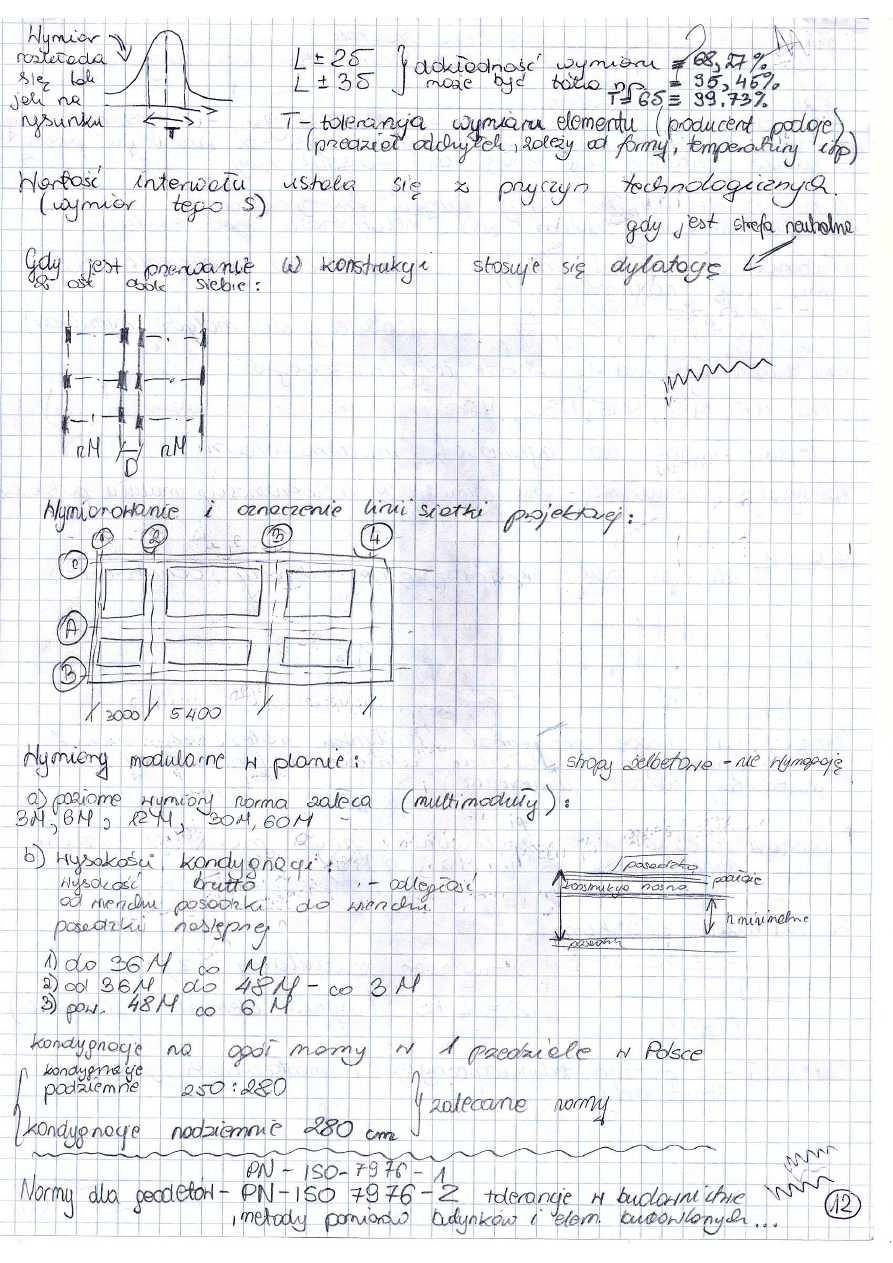 Wymiar
rozkłada
się tak
jak na
rysunku
T
L ± 2δ
L ± 3δ
dokładność wymiaru ≡ 68,27%
może być taka np. ≡ 95,45%
T=6δ ≡ 99.73%
T- tolerancja wymiaru elementu (producent podaje)
(przedział odchyłek, zależy od formy, temperatury itp)
Wartość interwału ustala się z przyczyn technologicznych.
(wymiar tego S)
gdy jest strefa neutralna
Gdy jest przerwanie w konstrukcji stosuje się dylatację
2 osie obok siebie:
nM D nM
Wymiarowanie i oznaczenie linii siatki projektowej:
1 2 3 4
C
A
B
3000 5400
Wymiary modularne w planie:
stropy żelbetowe - nie wymagają
a) poziome wymiary norma zaleca (multimoduły):
3M, 6M, 12M, 30M, 60M -
b) wysokości kondygnacji:
wysokość brutto - odległość
od wierzchu posadzki do wierzchu
posadzki następnej
posadzka
konstrukcja nośna
h minimalne
posadzka
1) do 36M co M
2) od 36M do 48M - co 3M
3) pow. 48M co 6M
kondygnacje na ogół mamy w 1 przedziele w Polsce
kondygnacje
podziemne 250:280
zalecane normy
kondygnacje nadziemnie 280 cm
PN-ISO-7976-1
Normy dla geodetów - PN-ISO 7976-2 tolerancje w budownictwie
, metody pomiarów budynków i elem. budowlanych...
12